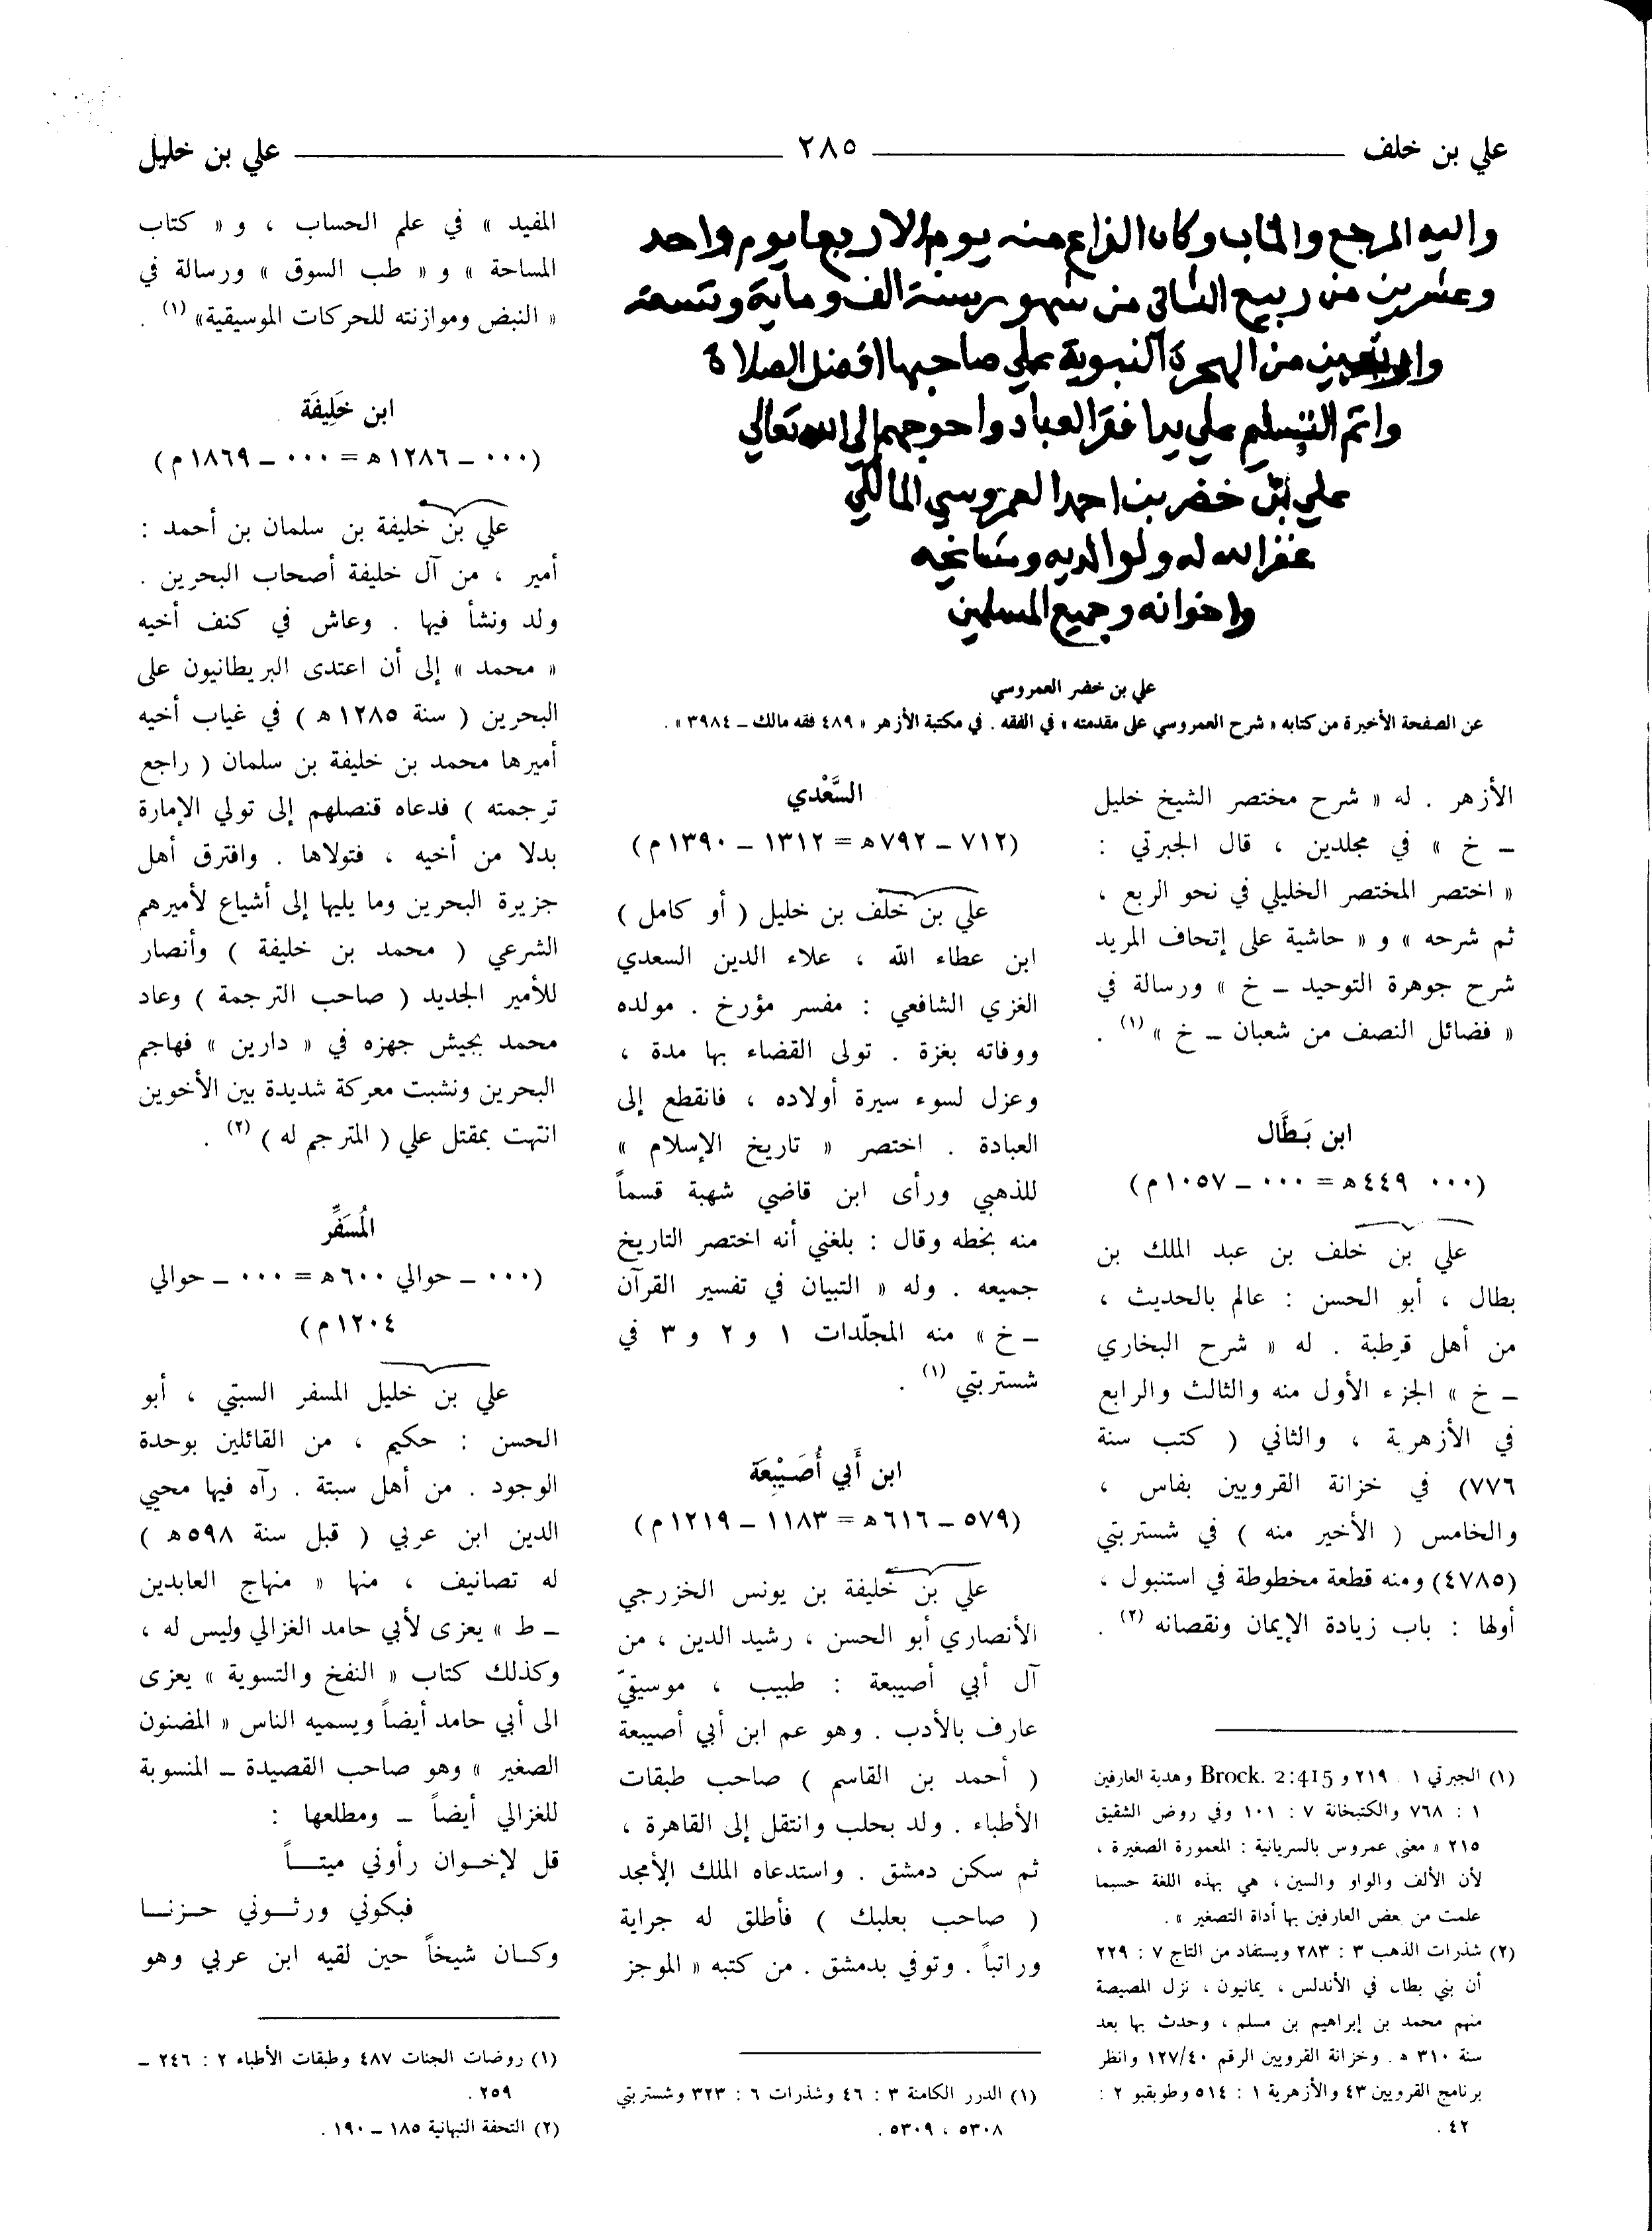 علي بن خلف ٢٨٥ علي بن خليل
واليه المرجع والماب وكان الفراغ منه يوم الاربعا يوم واحد
وعشرين من ربيع الثاني من شهور سنة الف وماية وتسعة
من الهجرة النبوية علي صاحبها افضل الصلاة
واتم التسليم علي يد افقر العباد واحوجهم الى الله تعالي
علي بن خضر بن احمد العمروسي المالكي
غفر الله له ولوالديه ومشايخه
واخوانه وجميع المسلمين
علي بن خضر العمروسي
عن الصفحة الأخيرة من كتابه « شرح العمروسي على مقدمته » في الفقه . في مكتبة الأزهر « ٤٨٩ فقه مالك ــ ٣٩٨٤ » .
الأزهر . له « شرح مختصر الشيخ خليل
ــ خ » في مجلدين ، قال الجبرتي :
« اختصر المختصر الخليلي في نحو الربع ،
ثم شرحه » و « حاشية على إتحاف المريد
شرح جوهرة التوحيد ــ خ » ورسالة في
« فضائل النصف من شعبان ــ خ » (١) .
ابن بَطَّال
(٠٠٠ ٤٤٩ ه = ٠٠٠ ــ ١٠٥٧ م)
علي بن خلف بن عبد الملك بن
بطال ، أبو الحسن : عالم بالحديث ،
من أهل قرطبة . له « شرح البخاري
ــ خ » الجزء الأول منه والثالث والرابع
في الأزهرية ، والثاني ( كتب سنة
٧٧٦) في خزانة القرويين بفاس ،
والخامس ( الأخير منه ) في شستربتي
(٤٧٨٥) ومنه قطعة مخطوطة في استنبول ،
أولها : باب زيادة الإيمان ونقصانه (٢) .
(١) الجبرتي ١ . ٢١٩ و Brock. 2:415 وهدية العارفين
١ : ٧٦٨ والكتبخانة ٧ : ١٠١ وفي روض الشقيق
٢١٥ « معنى عمروس بالسريانية : المعمورة الصغيرة ،
لأن الألف والواو والسين ، هي بهذه اللغة حسبما
علمت من بعض العارفين بها أداة التصغير » .
(٢) شذرات الذهب ٣ : ٢٨٣ ويستفاد من التاج ٧ : ٢٢٩
أن بني بطال في الأندلس ، يمانيون ، نزل المصيصة
منهم محمد بن إبراهيم بن مسلم ، وحدث بها بعد
سنة ٣١٠ ه . وخزانة القرويين الرقم ١٢٧/٤٠ وانظر
برنامج القرويين ٤٣ والأزهرية ١ : ٥١٤ وطوبقبو ٢ :
٤٢ .
السَّعْدي
(٧١٢ ــ ٧٩٢ ه = ١٣١٢ ــ ١٣٩٠ م)
علي بن خلف بن خليل ( أو كامل )
ابن عطاء الله ، علاء الدين السعدي
الغزي الشافعي : مفسر مؤرخ . مولده
ووفاته بغزة . تولى القضاء بها مدة ،
وعزل لسوء سيرة أولاده ، فانقطع إلى
العبادة . اختصر « تاريخ الإسلام »
للذهبي ورأى ابن قاضي شهبة قسماً
منه بخطه وقال : بلغني أنه اختصر التاريخ
جميعه . وله « التبيان في تفسير القرآن
ــ خ » منه المجلّدات ١ و ٢ و ٣ في
شستربتي (١) .
ابن أَبي أُصَيْبِعَة
(٥٧٩ ــ ٦١٦ ه = ١١٨٣ ــ ١٢١٩ م)
علي بن خليفة بن يونس الخزرجي
الأنصاري أبو الحسن ، رشيد الدين ، من
آل أبي أصيبعة : طبيب ، موسيقيّ
عارف بالأدب . وهو عم ابن أبي أصيبعة
( أحمد بن القاسم ) صاحب طبقات
الأطباء . ولد بحلب وانتقل إلى القاهرة ،
ثم سكن دمشق . واستدعاه الملك الأمجد
( صاحب بعلبك ) فأطلق له جراية
وراتباً . وتوفي بدمشق . من كتبه « الموجز
(١) الدرر الكامنة ٣ : ٤٦ وشذرات ٦ : ٣٢٣ وشستربتي
٥٣٠٨ ، ٥٣٠٩ .
المفيد » في علم الحساب ، و « كتاب
المساحة » و « طب السوق » ورسالة في
« النبض وموازنته للحركات الموسيقية» (١) .
ابن خَلِيفَة
(٠٠٠ ــ ١٢٨٦ ه = ٠٠٠ ــ ١٨٦٩ م)
علي بن خليفة بن سلمان بن أحمد :
أمير ، من آل خليفة أصحاب البحرين .
ولد ونشأ فيها . وعاش في كنف أخيه
« محمد » إلى أن اعتدى البريطانيون على
البحرين ( سنة ١٢٨٥ ه ) في غياب أخيه
أميرها محمد بن خليفة بن سلمان ( راجع
ترجمته ) فدعاه قنصلهم إلى تولي الإمارة
بدلا من أخيه ، فتولاها . وافترق أهل
جزيرة البحرين وما يليها إلى أشياع لأميرهم
الشرعي ( محمد بن خليفة ) وأنصار
للأمير الجديد ( صاحب الترجمة ) وعاد
محمد بجيش جهزه في « دارين » فهاجم
البحرين ونشبت معركة شديدة بين الأخوين
انتهت بمقتل علي ( المترجم له ) (٢) .
المُسَفِّر
(٠٠٠ ــ حوالي ٦٠٠ ه = ٠٠٠ ــ حوالي
١٢٠٤ م)
علي بن خليل المسفر السبتي ، أبو
الحسن : حكيم ، من القائلين بوحدة
الوجود . من أهل سبتة . رآه فيها محيي
الدين ابن عربي ( قبل سنة ٥٩٨ ه )
له تصانيف ، منها « منهاج العابدين
ــ ط » يعزى لأبي حامد الغزالي وليس له ،
وكذلك كتاب « النفخ والتسوية » يعزى
الى أبي حامد أيضاً ويسميه الناس « المضنون
الصغير » وهو صاحب القصيدة ــ المنسوبة
للغزالي أيضاً ــ ومطلعها :
قل لإخــوان رأوني ميتــــاً
فبكوني ورثــوني حــزنــا
وكــان شيخاً حين لقيه ابن عربي وهو
(١) روضات الجنات ٤٨٧ وطبقات الأطباء ٢ : ٢٤٦ ــ
٢٥٩ .
(٢) التحفة النبهانية ١٨٥ ــ ١٩٠ .